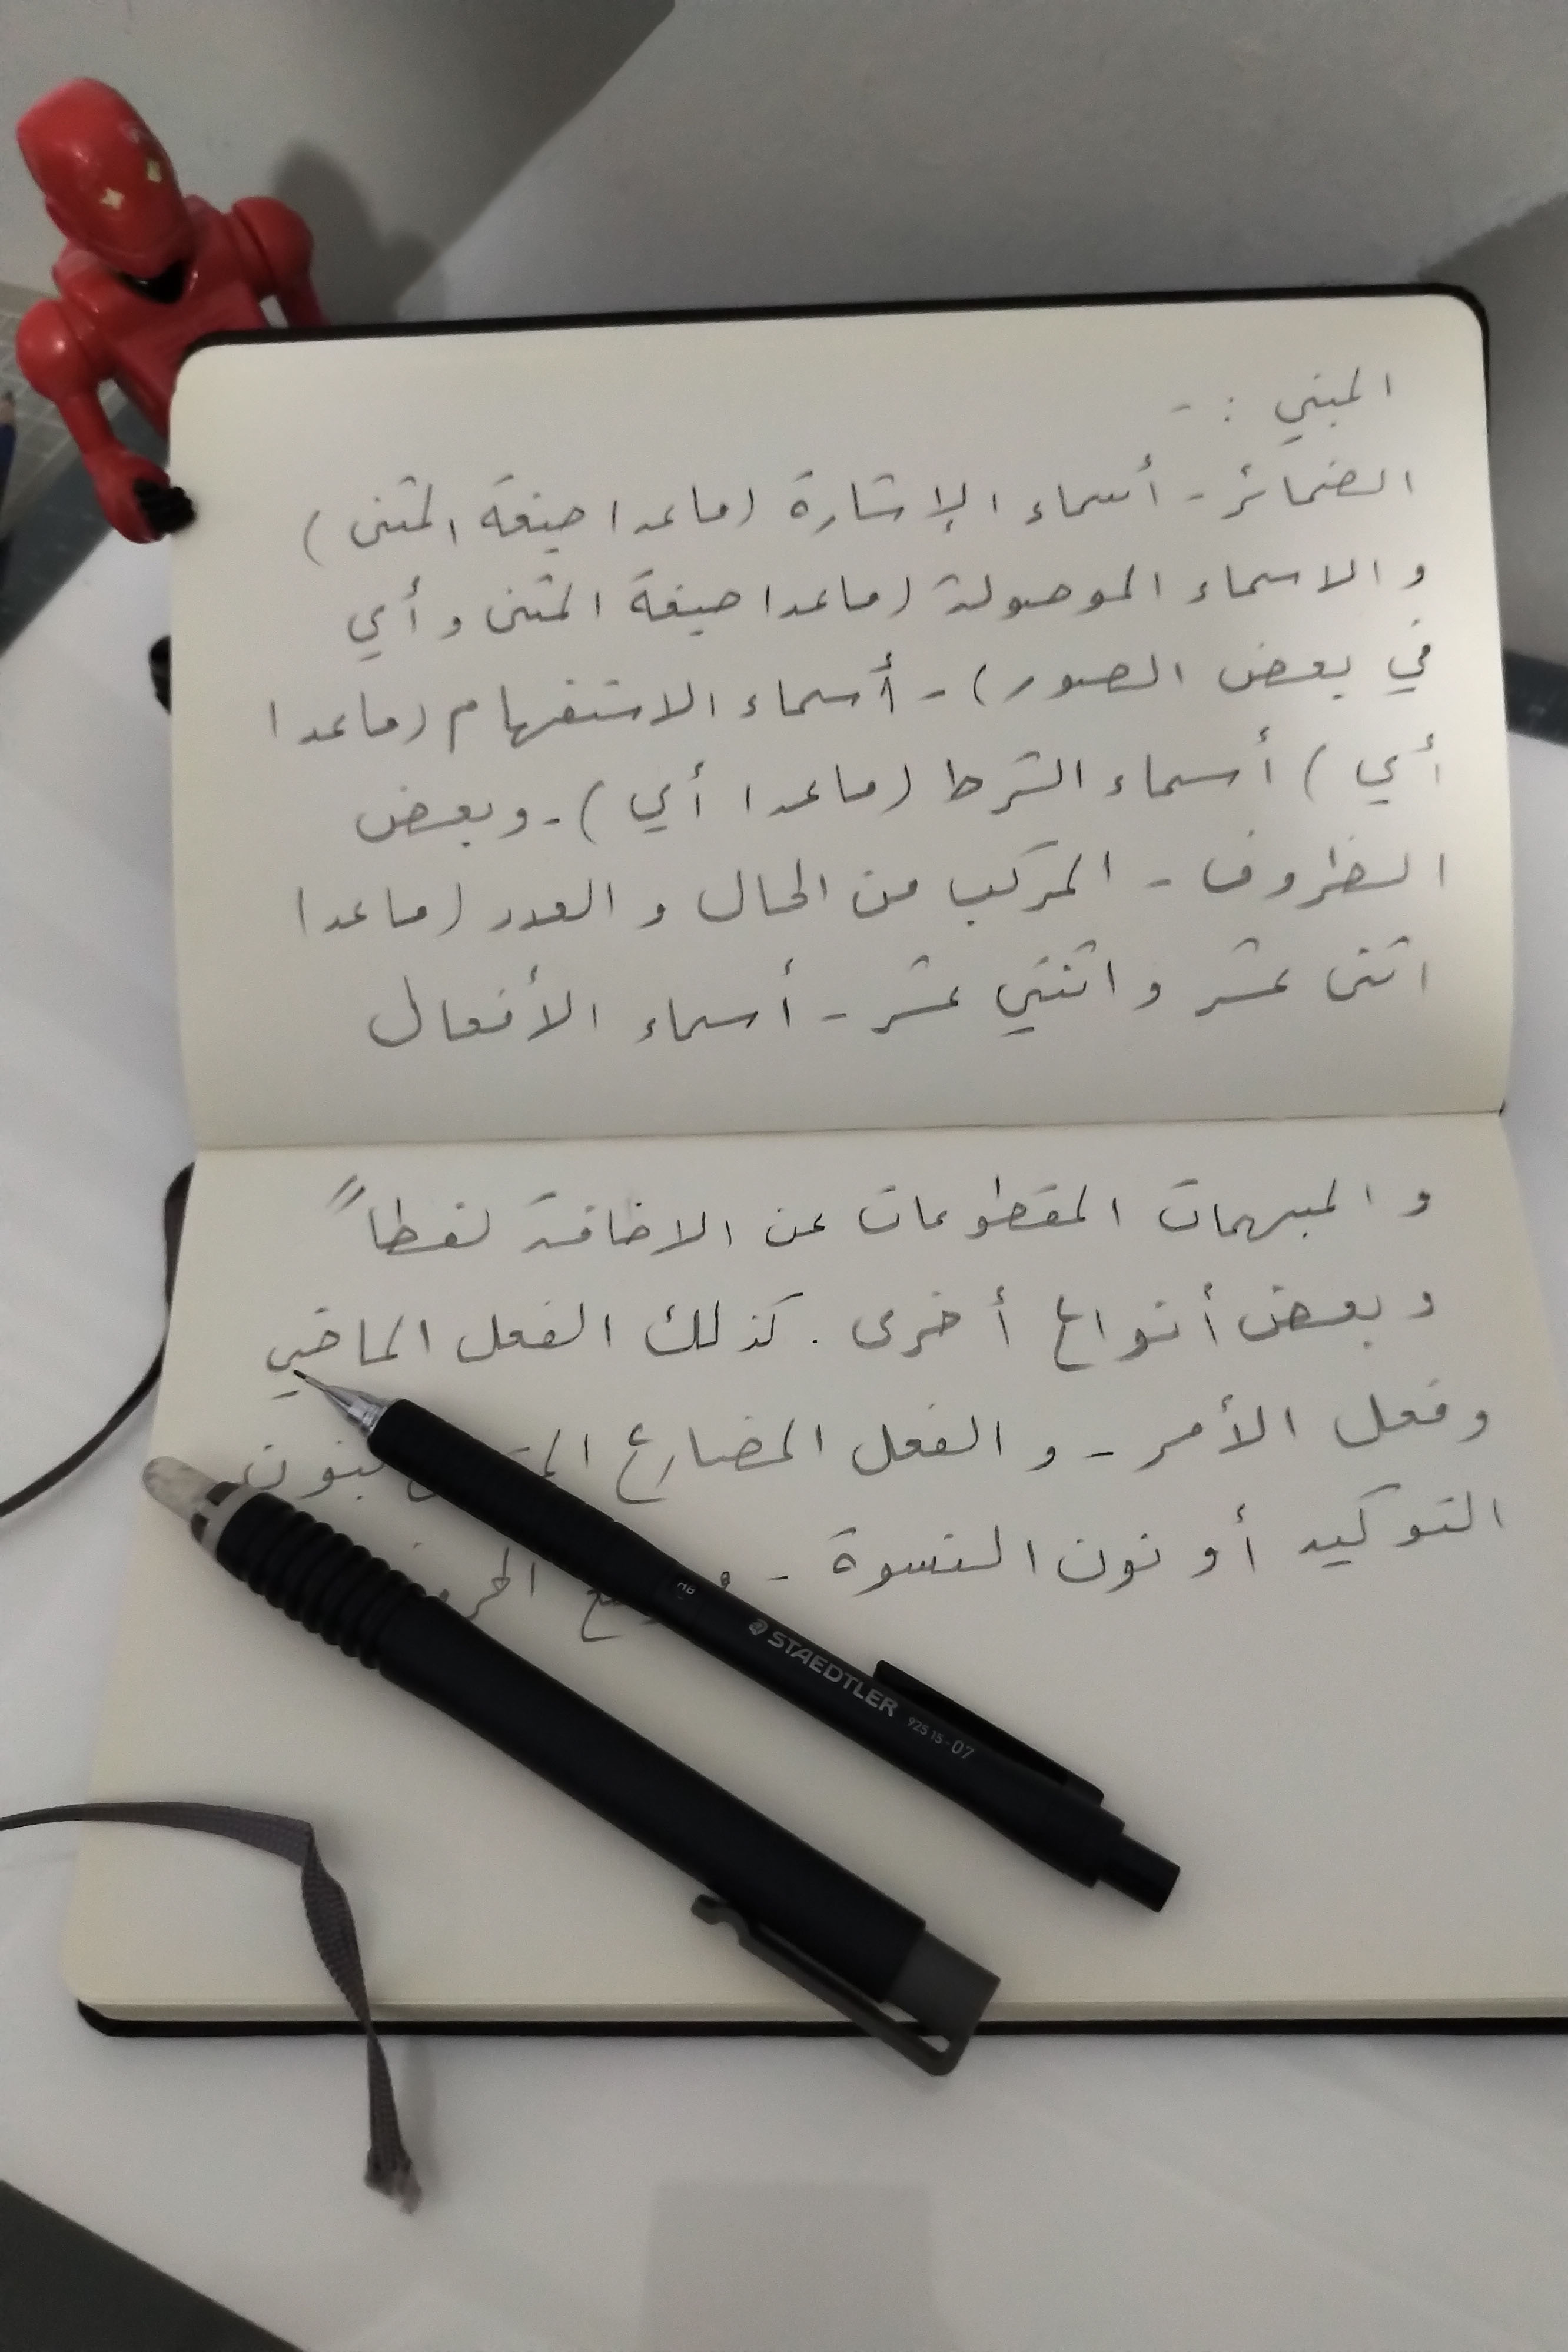 المبني : -
الضمائر - أسماء الإشارة (ماعدا صيغة المثنى)
و الاسماء الموصولة (ماعدا صيغة المثنى و أي
في بعض الصور) - أسماء الاستفهام (ماعدا
أي) أسماء الشرط (ماعدا أي) - وبعض
الظروف - المركب من الحال و العدد (ماعدا
اثنى عشر و اثنتي عشر - أسماء الأفعال
و المبهمات المقطوعات عن الاضافة لفظاً
و بعض أنواع أخرى . كذلك الفعل الماضي
وفعل الأمر - و الفعل المضارع بنون
التوكيد أو نون النسوة -
HB
STAEDTLER 925 15-07